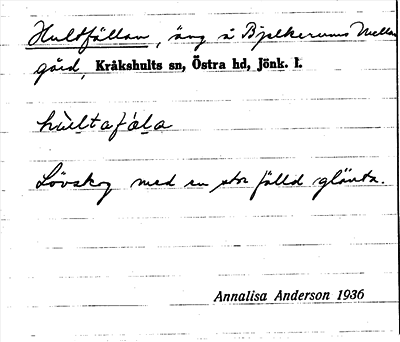 Hultfällan, äng å Bjälkerums Mellan
gård, Kråkshults sn, Östra hd, Jönk. l.
hùltafàla
Lövskog med en stor fälld glänta.
Annalisa Anderson 1936